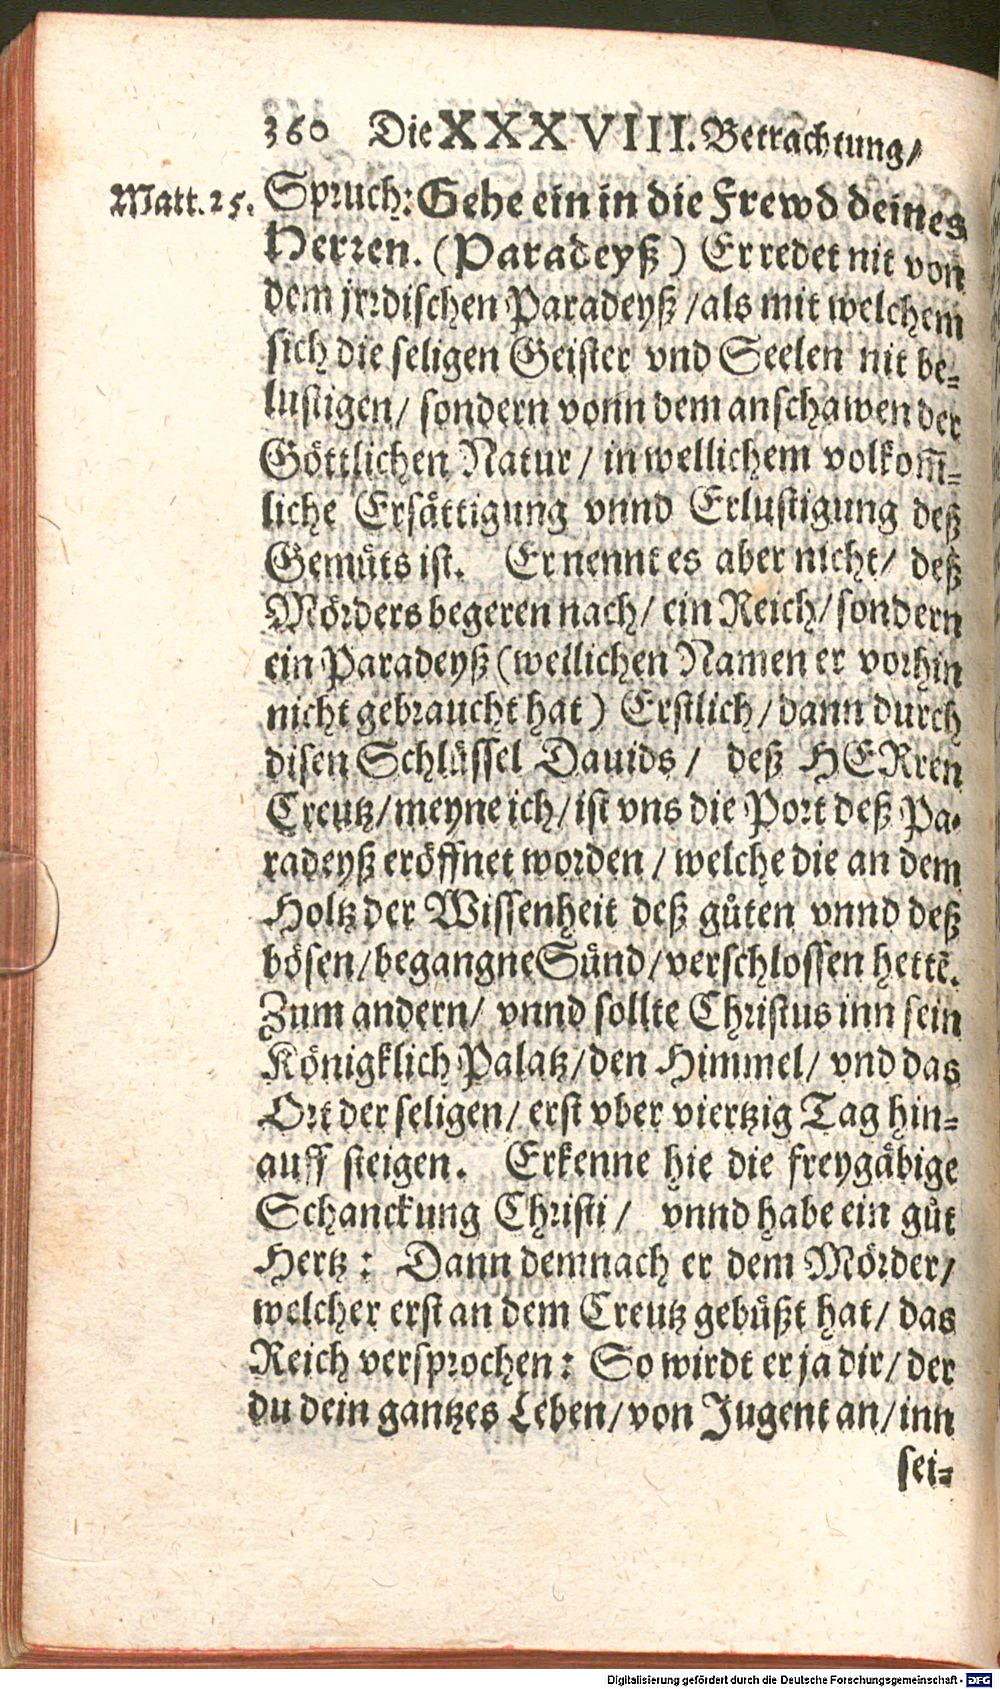 360 Die XXXVIII. Betrachtung/
Matt. 25. Spruch: Gehe ein in die Frewd deines
Herren. (Paradeyß) Er redet nit von
dem jrrdischen Paradeyß/als mit welchem
sich die seligen Geister vnd Seelen nit be-
lustigen/ sondern vonn dem anschawen der
Göttlichen Natur/ in wellichem volkom̃-
liche Ersättigung vnnd Erlustigung deß
Gemüts ist. Er nennt es aber nicht/ deß
Mörders begeren nach/ ein Reich/sondern
ein Paradeyß (wellichen Namen er vorhin
nicht gebraucht hat) Erstlich/dann durch
disen Schlüssel Dauids/ deß HERren
Creutz/meyne ich/ist vns die Port deß Pa-
radeyß eröffnet worden/welche die an dem
Holtz der Wissenheit deß gůten vnnd deß
bösen/begangne Sünd/verschlossen hettẽ.
Zum andern/ vnnd sollte Christus inn sein
Königklich Palatz/den Himmel/ vnd das
Ort der seligen/ erst vber viertzig Tag hin-
auff steigen. Erkenne hie die freygäbige
Schanckung Christi/ vnnd habe ein gůt
Hertz: Dann demnach er dem Mörder/
welcher erst an dem Creutz gebüßt hat/ das
Reich versprochen: So wirdt er ja dir/ der
du dein gantzes Leben/von Jugent an/inn
sei-
Digitalisierung gefördert durch die Deutsche Forschungsgemeinschaft - DFG